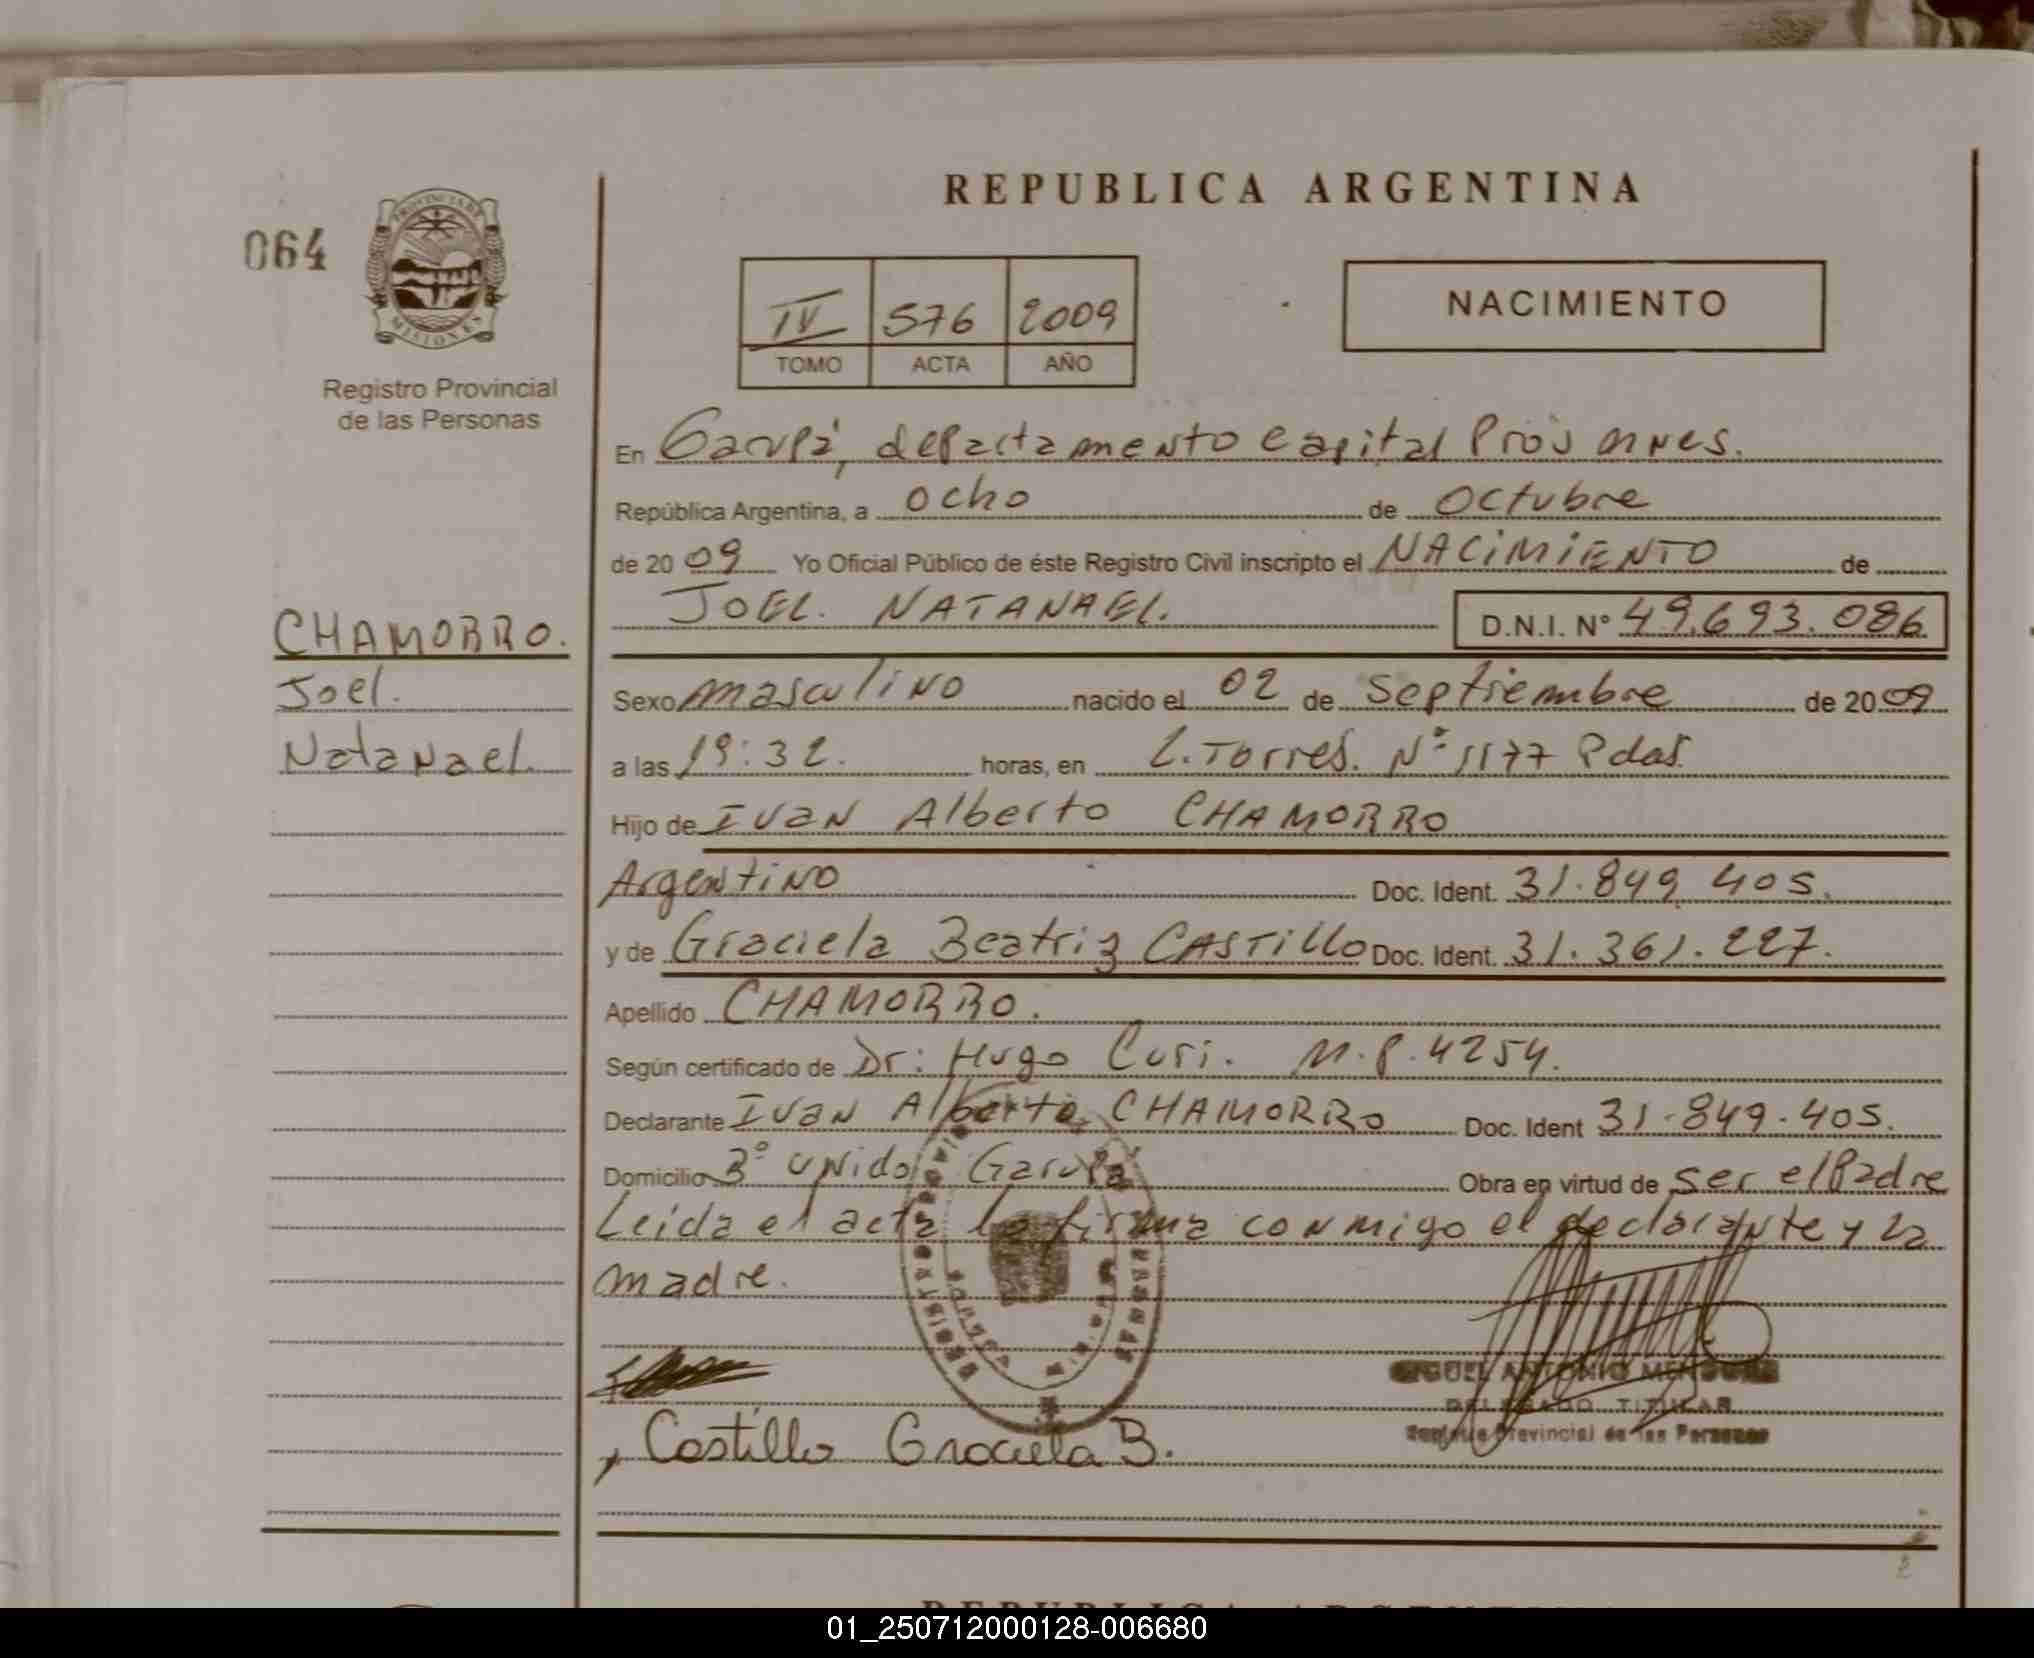 REPUBLICA ARGENTINA
064
PROVINCIA DE
MISIONES
Registro Provincial
de las Personas
IV 576 2009
TOMO ACTA AÑO
NACIMIENTO
En Garupá, departamento Capital
República Argentina, a ocho de Octubre
de 2009 Yo Oficial Público de éste Registro Civil inscripto el NACIMIENTO de
JOEL. NATANAEL. D.N.I. Nº 49.693.086
CHAMORRO.
Joel.
Natanael.
Sexo masculino nacido el 02 de Septiembre de 2009
a las 19:32. horas, en L. Torres. Nº 1177 Pdas.
Hijo de Ivan Alberto CHAMORRO
Argentino Doc. Ident. 31.849.405.
y de Graciela Beatriz CASTILLO Doc. Ident. 31.361.227.
Apellido CHAMORRO.
Según certificado de Dr: Hugo Curi. M.P.4254.
Declarante Ivan Alberto CHAMORRO Doc. Ident 31.849.405.
Domicilio Bº Unido Garupá Obra en virtud de ser el Padre
Leida el acta la firma conmigo el declarante y la
madre.
ANTONIO
DELEGADO TITULAR
Registro Provincial de las Personas
Castillo Graciela B.
01_250712000128-006680